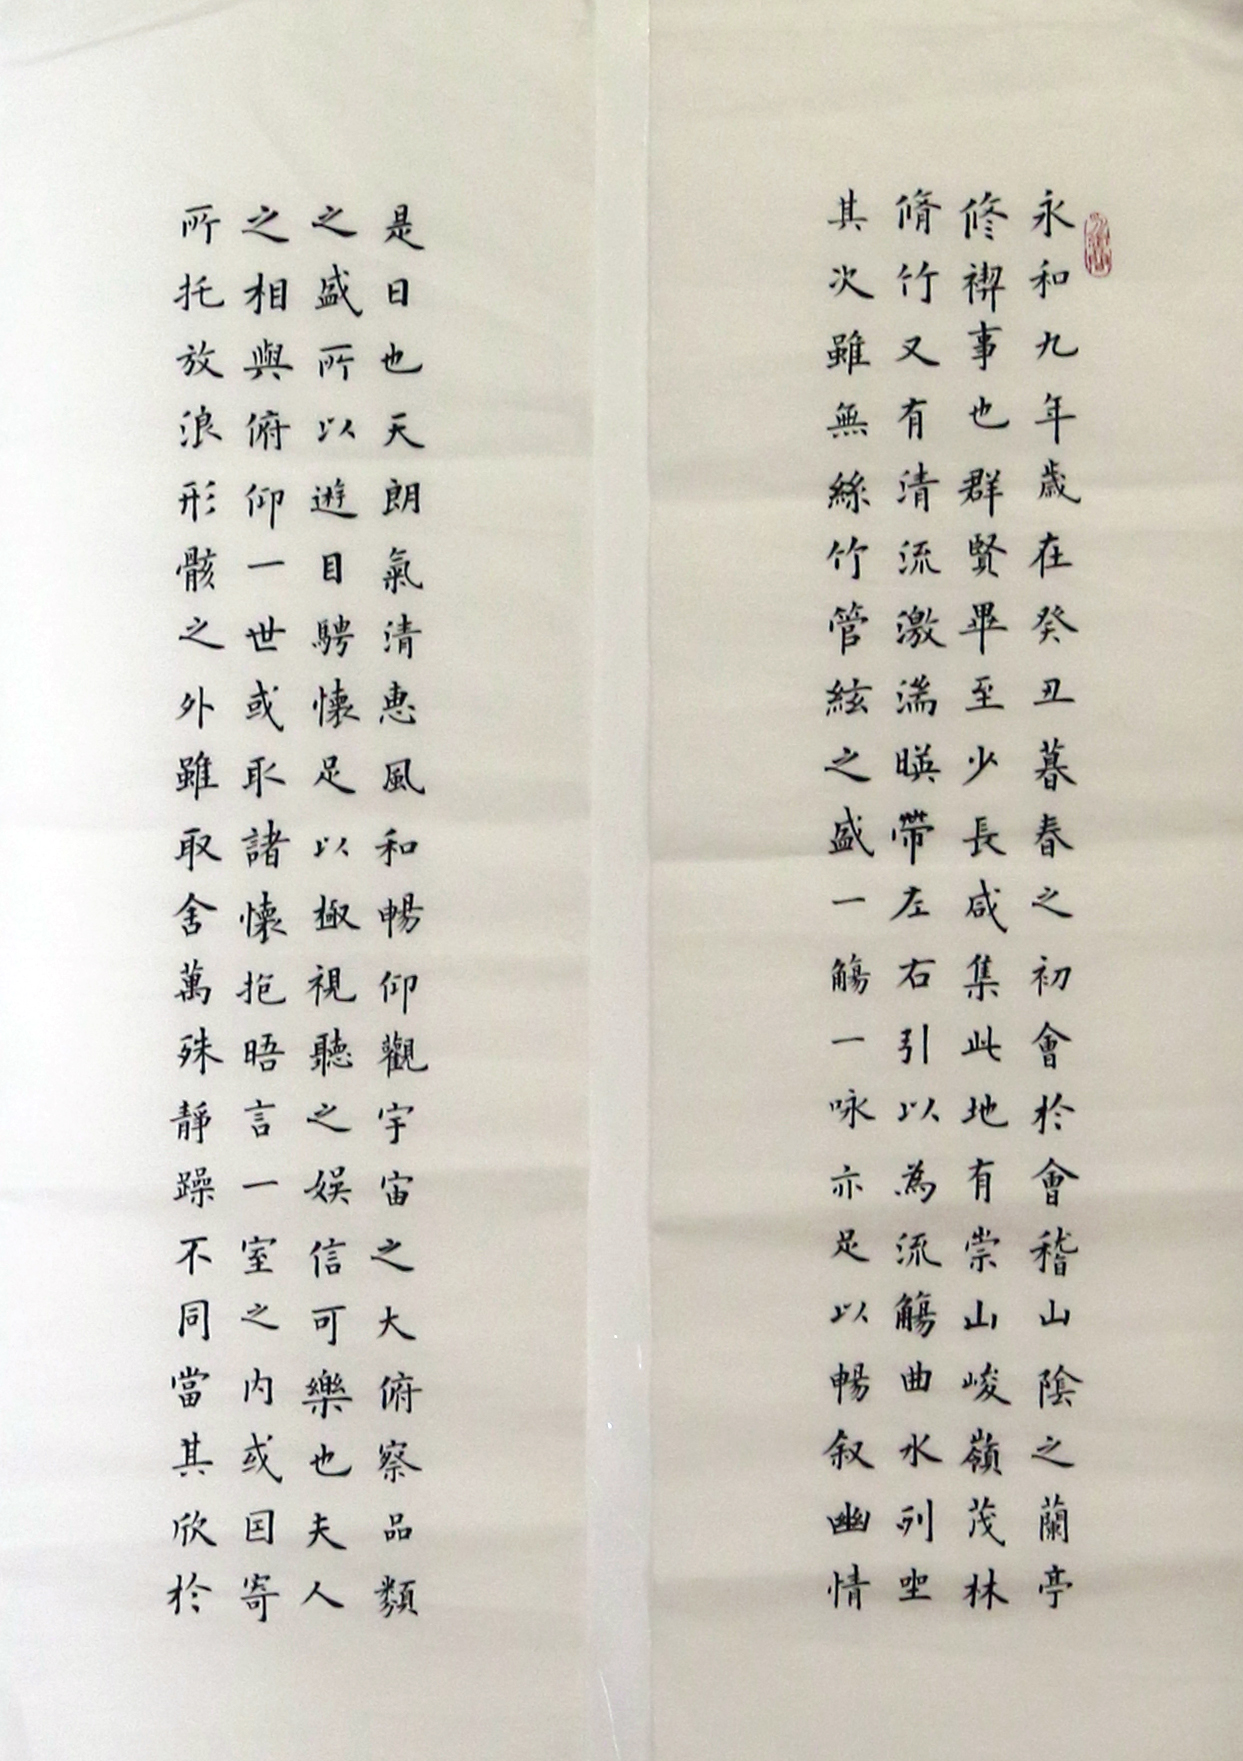 永和九年歲在癸丑暮春之初會於會稽山陰之蘭亭
修禊事也群賢畢至少長咸集此地有崇山峻嶺茂林
脩竹又有清流激湍暎帶左右引以為流觴曲水列坐
其次雖無絲竹管絃之盛一觴一咏亦足以暢叙幽情
是日也天朗氣清惠風和暢仰觀宇宙之大俯察品類
之盛所以遊目騁懷足以極視聽之娛信可樂也夫人
之相與俯仰一世或取諸懷抱晤言一室之內或因寄
所托放浪形骸之外雖取舍萬殊靜躁不同當其欣於